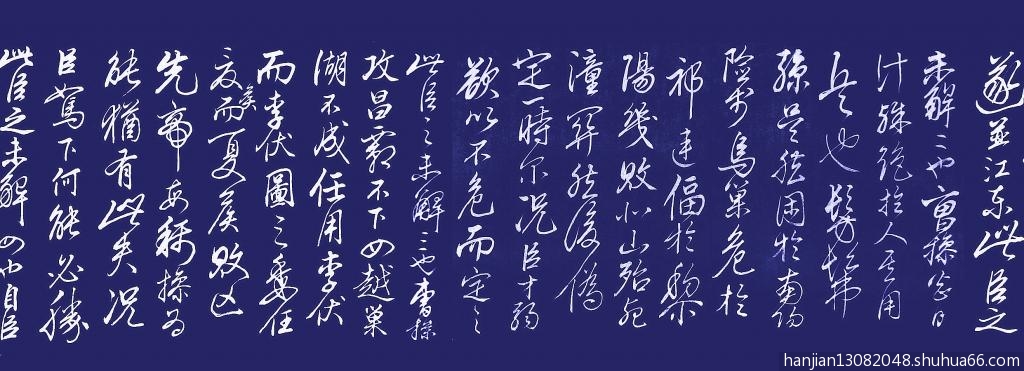 遂並江東此臣之
未解二也曹操智
計殊絕於人其用
兵也髣髴
孫吳然困於南陽
險於烏巢危於
祁連偪於黎
陽幾敗北山殆死
潼關然後偽
定一時尔況臣才弱
欲以不危而定之
此臣之未解三也曹操
攻昌霸不下四越巢
湖不成任用李伏
而李伏圖之委任
夏侯而夏侯敗亡
先帝每稱操為
能猶有此失況
臣駑下何能必勝
此臣之未解四也自臣
hanjian13082048.shuhua66.com